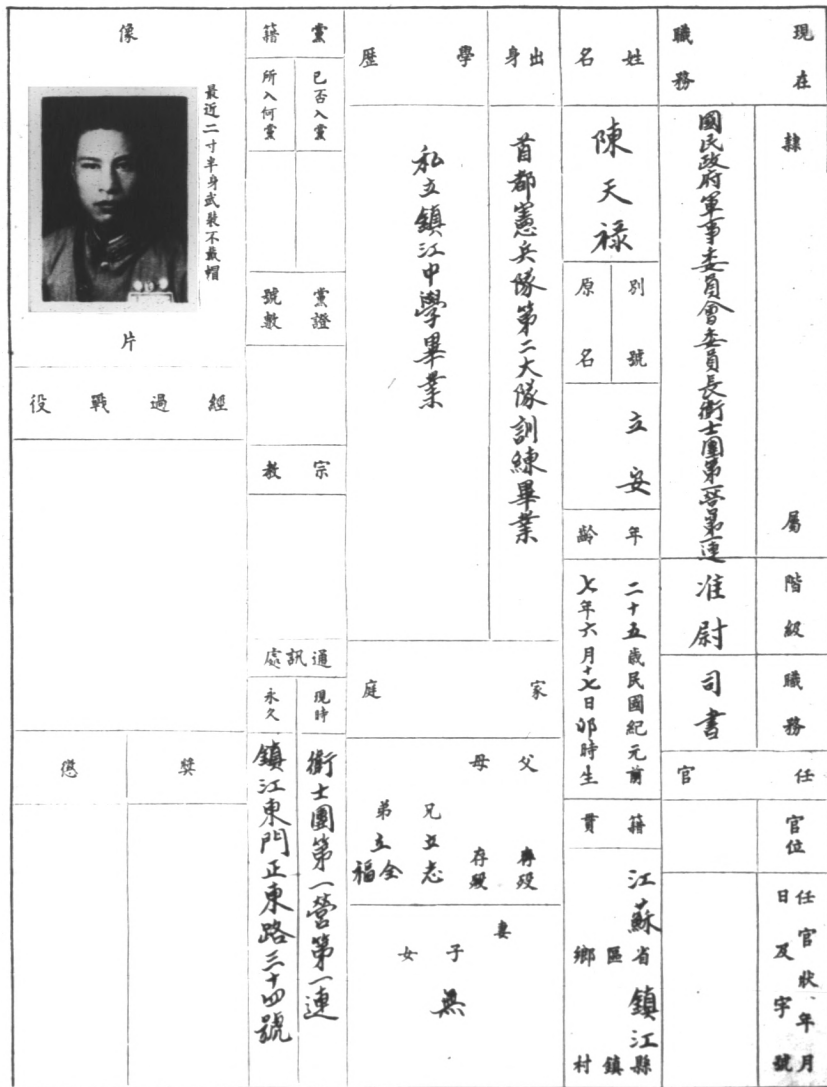 現在職務
隸屬
國民政府軍事委員會委員長衛士團第一營第一連
階級
准尉
職務
司書
任官
官位
任官狀年月日及字號
姓名
陳天祿
別號
原名
立安
年齡
二十五歲民國紀元前
七年六月十七日卯時生
籍貫
江蘇省鎮江縣
區鎮
鄉村
出身
首都憲兵隊第二大隊訓練畢業
學歷
私立鎮江中學畢業
家庭
父
存歿
母
存歿
兄立志
弟立全
福
妻
子
女
無
黨籍
已否入黨
所入何黨
黨證號數
宗教
通訊處
現時
衛士團第一營第一連
永久
鎮江東門正東路三十四號
像片
最近二寸半身武裝不戴帽
經過戰役
獎
懲